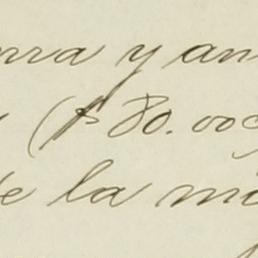 rra y an
($80.00
de la m